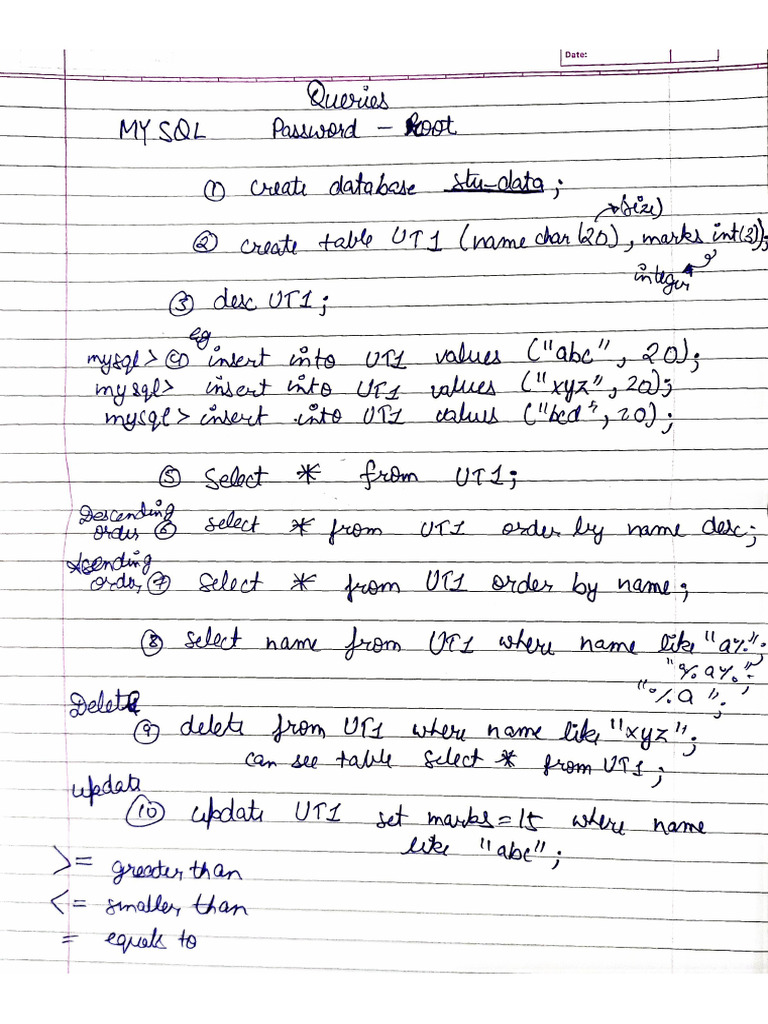 Date:
Queries
MY SQL Password - Root
① create database stu_data;
→(size)
② create table UT1 (name char (20), marks int(3));
integer
③ desc UT1;
eg
mysql> ④ insert into UT1 values ("abc", 20);
mysql> insert into UT1 values ("xyz", 20);
mysql> insert into UT1 values ("bcd", 20);
⑤ Select * from UT1;
Descending
order ⑥ select * from UT1 order by name desc;
Asending
order, ⑦ select * from UT1 order by name;
⑧ select name from UT1 where name like "a%";
"%a%";
"%a";
Delete
⑨ delete from UT1 where name like "xyz";
can see table select * from UT1;
update
⑩ update UT1 set marks=15 where name
like "abc";
>= greater than
<= smaller than
= equals to